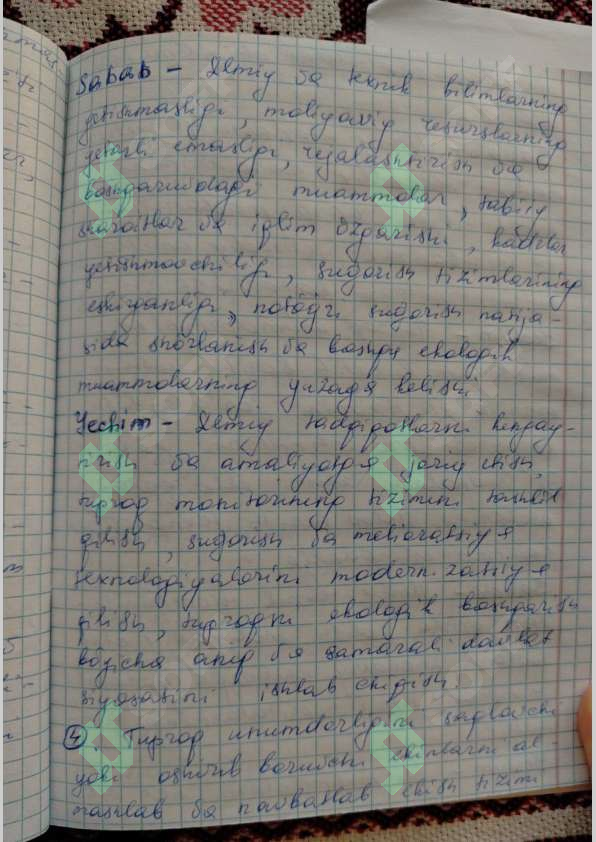 Sabab – Ilmiy va texnik bilimlarning
yetishmasligi, moliyaviy resurslarning
yetarli emasligi, rejalashtirish va
boshqaruvdagi muammolar, tabiiy
sharoitlar va iqlim özgarishi, kadrlar
yetishmovchiligi, sugorish tizimlarining
eskirganligi, notög'ri sugorish natija-
sida shorlanish va boshqa ekologik
muammolarning yuzaga kelishi
Yechim – Ilmiy tadqiqotlarni kengay-
tirish va amaliyotga joriy etish,
tuproq monitoringi tizimini tashkil
qilish, sugorish va melioratsiya
texnologiyalarini modernizatsiya
qilish, tuproqni ekologik boshqarish
böyicha aniq va samarali davlat
siyosatini ishlab chiqish.
4. Tuproq unumdorligini saqlovchi
yoki oshirib boruvchi ekinlarni al-
mashlab va navbatlab ekish tizimi